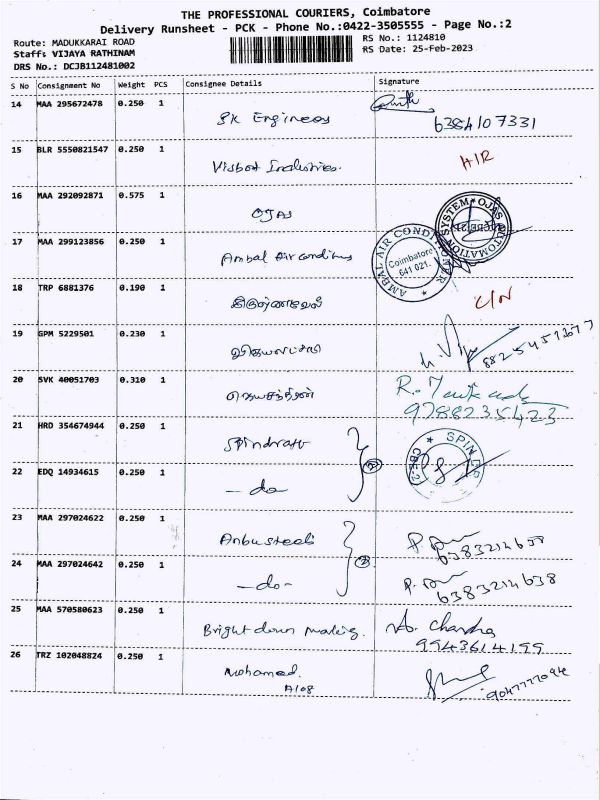 THE PROFESSIONAL COURIERS, Coimbatore
Delivery Runsheet - PCK - Phone No.:0422-3505555 - Page No.:2
Route: MADUKKARAI ROAD
RS No.: 1124810
Staff: VIJAYA RATHINAM
RS Date: 25-Feb-2023
DRS No.: DCJB112481002
S No Consignment No Weight PCS Consignee Details Signature
14 MAA 295672478 0.250 1 SK Engineers
6384107331
15 BLR 5550821547 0.250 1 Industries.
16 MAA 292092871 0.575 1 OJAS
OJAS AUTOMATION SYSTEM
17 MAA 299123856 0.250 1 Ambal Air conditions
AMBAL AIR CONDITIONER
Coimbatore
641 021.
18 TRP 6881376 0.190 1
19 GPM 5229501 0.230 1 விஜயலட்சுமி
20 SVK 40051703 0.310 1
9788235423
21 HRD 354674944 0.250 1 SPIN
22 EDQ 14934615 0.250 1 - do -
23 MAA 297024622 0.250 1 Anbu steels
24 MAA 297024642 0.250 1 - do -
6383214638
25 MAA 570580623 0.250 1 Bright down making. A. Chandra
9943614199
26 TRZ 102048824 0.250 1 Mohamed.
A108